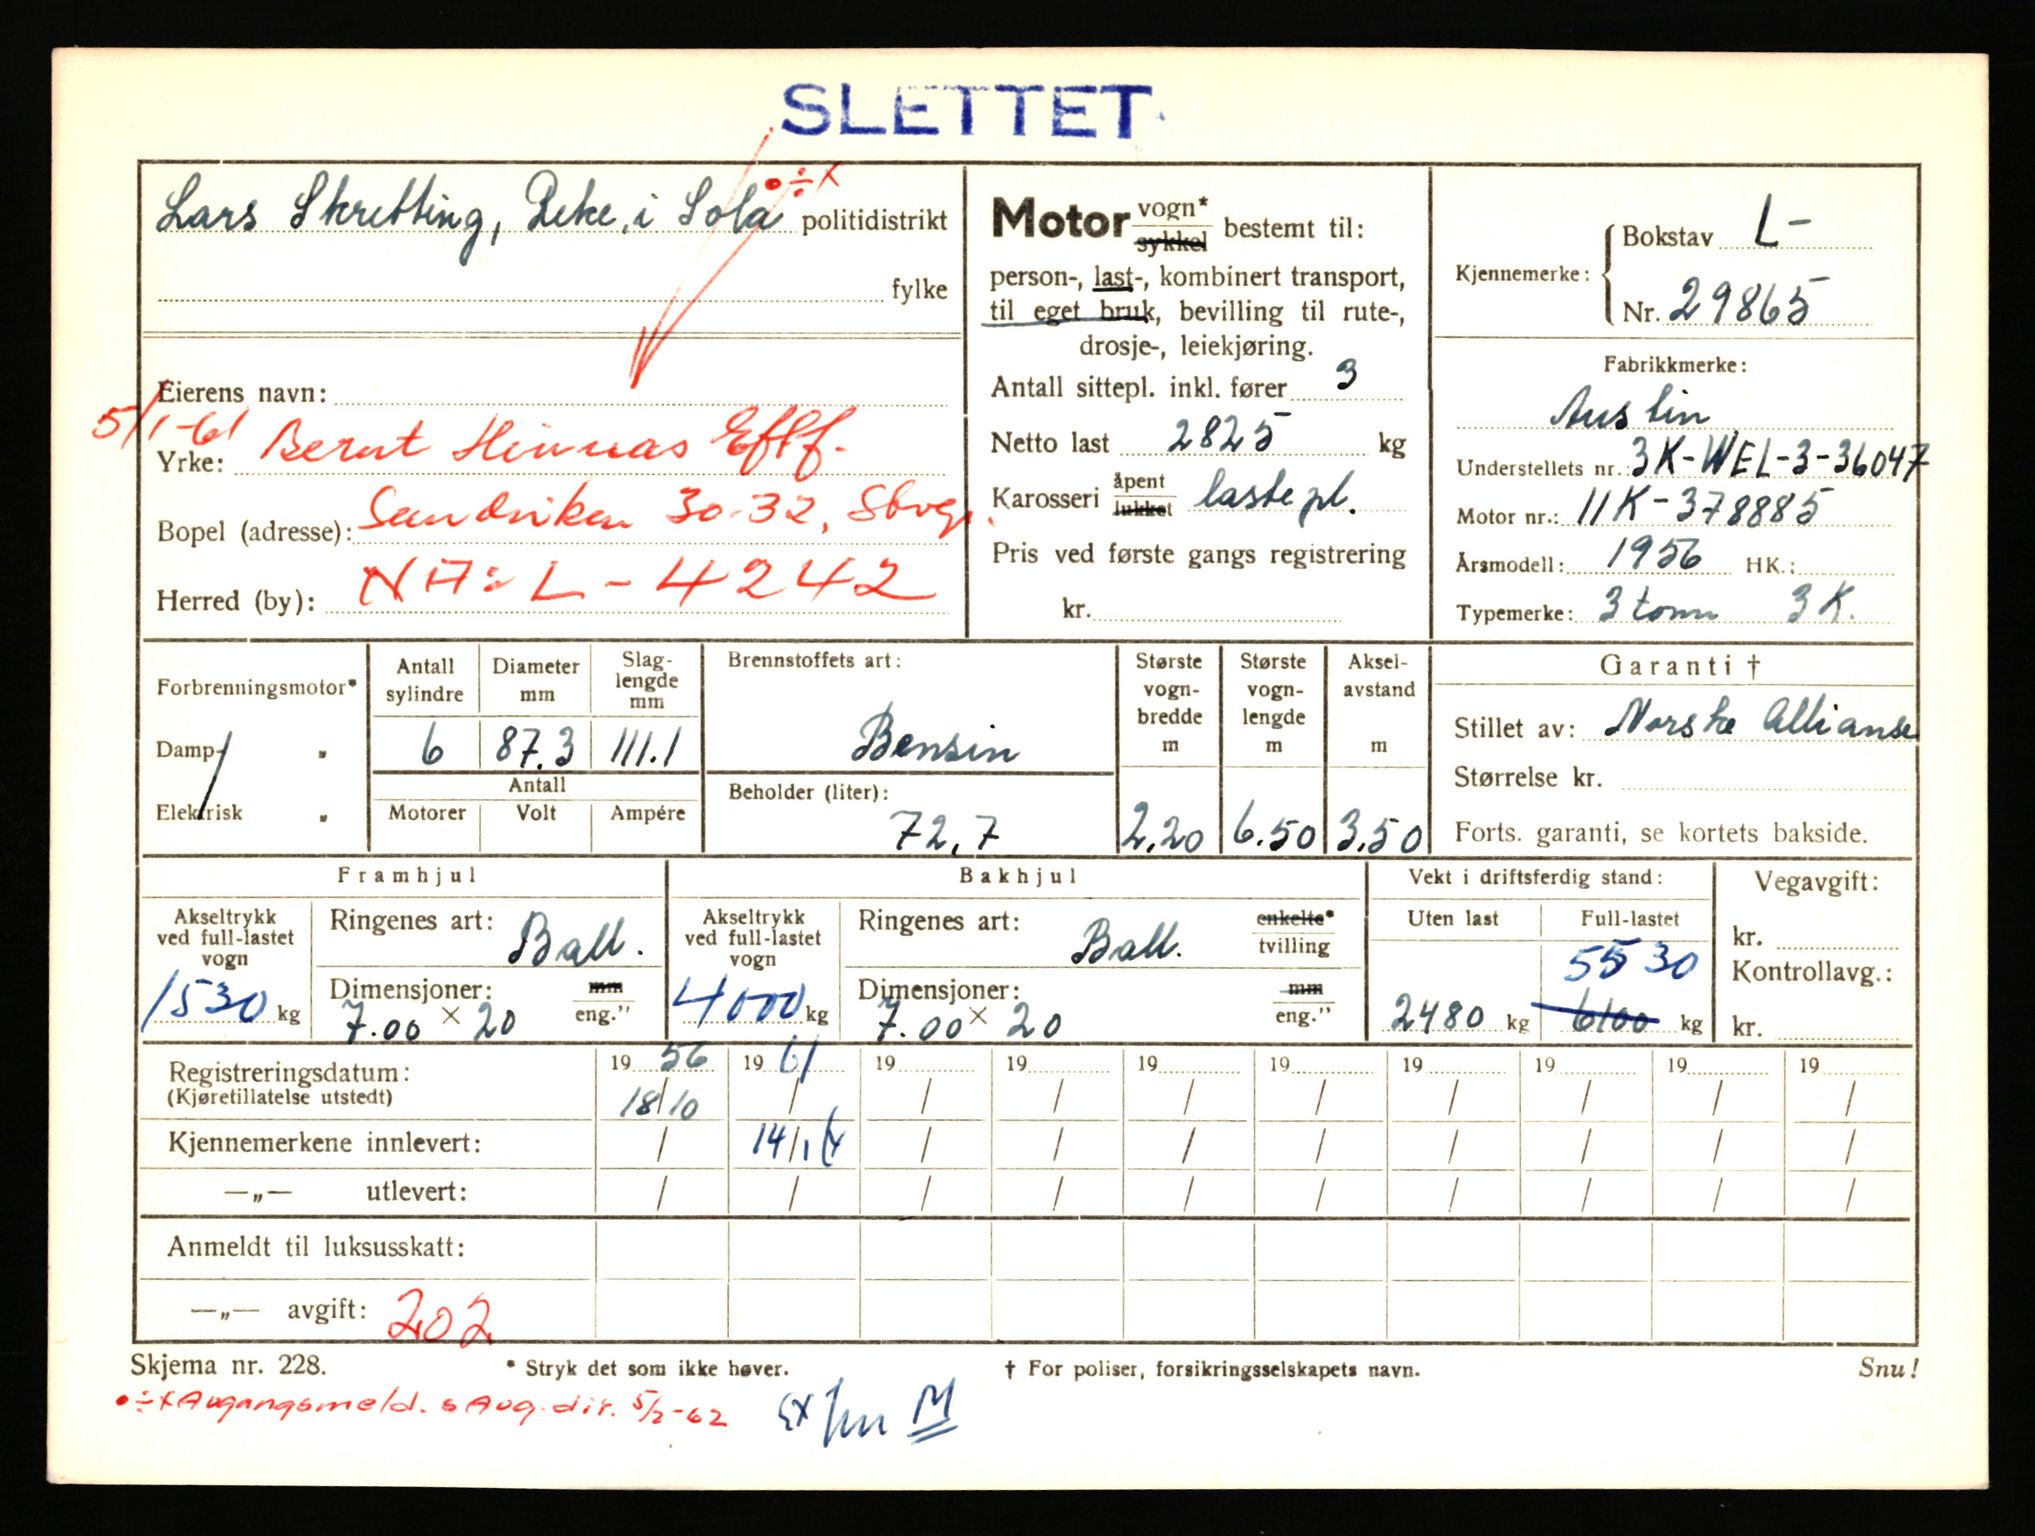 SLETTET
Lars Skretting, i Sola politidistrikt
•÷X
fylke
Eierens navn:
5/1-61
Yrke: Bernt Hinnas Eftf.
Bopel (adresse): Sandviken 30-32, Stvgr.
Herred (by): NA: L-4242
Motor vogn* sykkel bestemt til:
person-, last-, kombinert transport,
til eget bruk, bevilling til rute-,
drosje-, leiekjøring.
Antall sittepl. inkl. fører 3
Netto last 2825 kg
Karosseri åpent lukket lastepl.
Pris ved første gangs registrering
kr.
Kjennemerke: Bokstav L-
Nr. 29865
Fabrikkmerke:
Austin
Understellets nr.: 3K-WEL-3-36047
Motor nr.: 11K-378885
Årsmodell: 1956 HK.:
Typemerke: 3 tonn 3K.
Forbrenningsmotor*
Damp- „
Elektrisk „
Antall sylindre 6
Diameter mm 87.3
Slag-lengde mm 111.1
Antall
Motorer Volt Ampére
Brennstoffets art:
Bensin
Beholder (liter):
72,7
Største vogn-bredde m 2.20
Største vogn-lengde m 6.50
Aksel-avstand m 3.50
Garanti †
Stillet av: Norske Allianse
Størrelse kr.
Forts. garanti, se kortets bakside.
Framhjul
Akseltrykk ved full-lastet vogn
1530 kg
Ringenes art: Ball.
Dimensjoner: mm eng."
7.00 × 20
Bakhjul
Akseltrykk ved full-lastet vogn
4000 kg
Ringenes art: Ball. enkelte* tvilling
Dimensjoner: mm eng."
7.00 × 20
Vekt i driftsferdig stand:
Uten last Full-lastet
5530
2480 kg 6100 kg
Vegavgift:
kr.
Kontrollavg.:
kr.
Registreringsdatum: 1956 1961 19 19 19 19 19 19 19 19
(Kjøretillatelse utstedt) 18/10 / / / / / / / / /
Kjennemerkene innlevert: / 14/1 / / / / / / / /
—„— utlevert: / / / / / / / / / /
Anmeldt til luksusskatt:
—„— avgift: 202
Skjema nr. 228. * Stryk det som ikke høver. † For poliser, forsikringsselskapets navn. Snu!
•÷X Avgangsmeld. s Avg. dir. 5/2-62 M